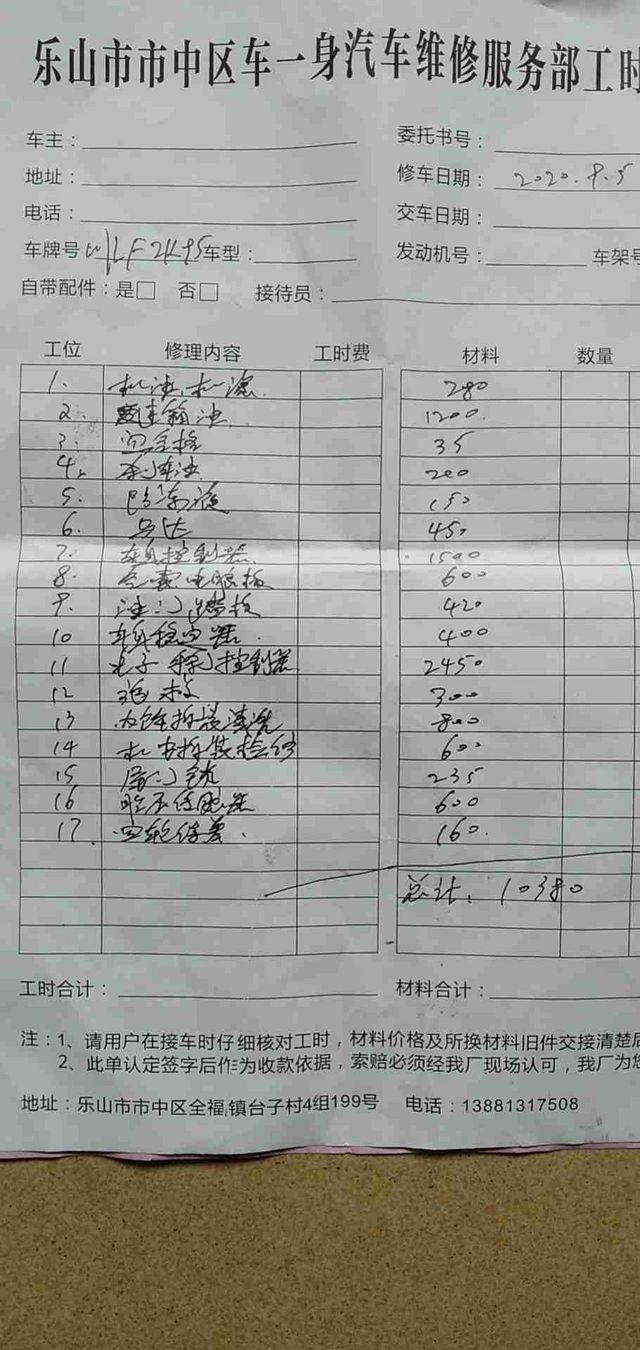 乐山市市中区车一身汽车维修服务部工时
车主： 委托书号：
地址： 修车日期： 2020.9.5
电话： 交车日期：
车牌号 川LF2K95 车型： 发动机号： 车架号
自带配件：是□ 否□ 接待员：
工位 修理内容 工时费 材料 数量
1. 机油.机滤. 280
2. 变速箱油 1200.
3. 35
4. 刹车油 200
5. 防冻液 150
6. 马达 450
7. 车身控制器 1500
8. 气囊电脑板 600
9. 油门踏板 420
10 车身稳定器. 400
11 电子 控制器 2450
12 300
13 内饰拆装清洗 800
14 机电拆装检修 600
15 尾门锁 235
16 600
17. 四轮保养. 160.
总计：10380
工时合计： 材料合计：
注：1、请用户在接车时仔细核对工时，材料价格及所换材料旧件交接清楚后
2、此单认定签字后作为收款依据，索赔必须经我厂现场认可，我厂为您
地址：乐山市市中区全福镇台子村4组199号 电话：13881317508